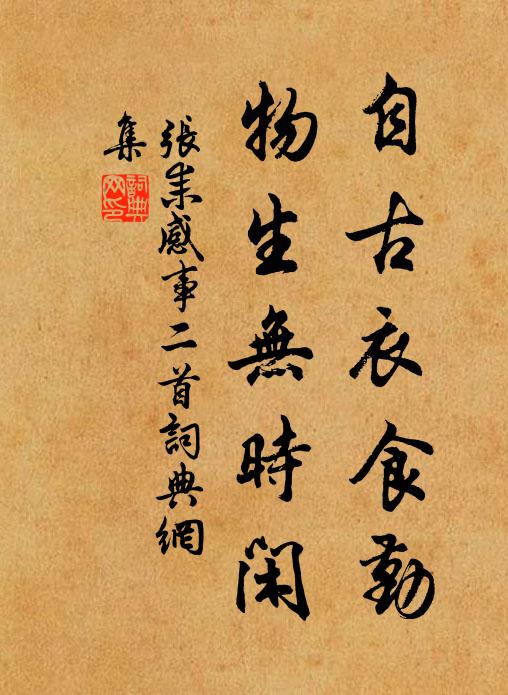 自古衣食勤
物生無時閑
張耒感事二首詞典網
集
詞典網印